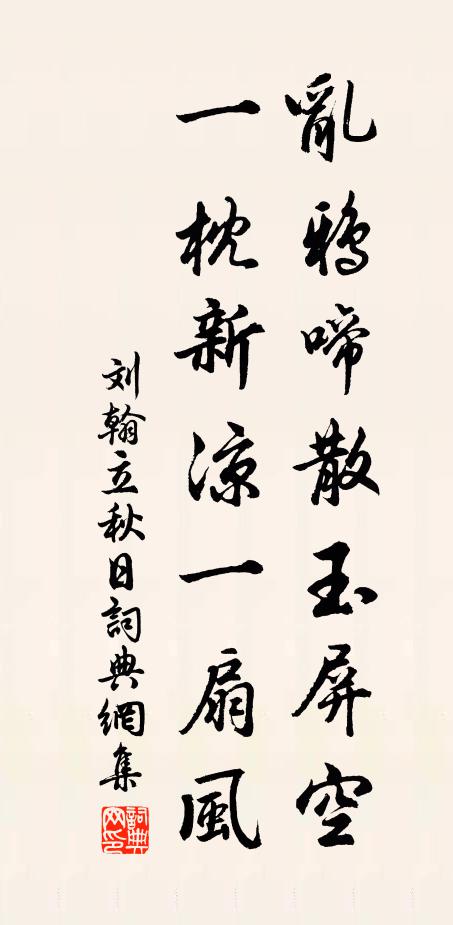 亂鴉啼散玉屏空
一枕新涼一扇風
刘翰立秋日詞典網集
詞典網印